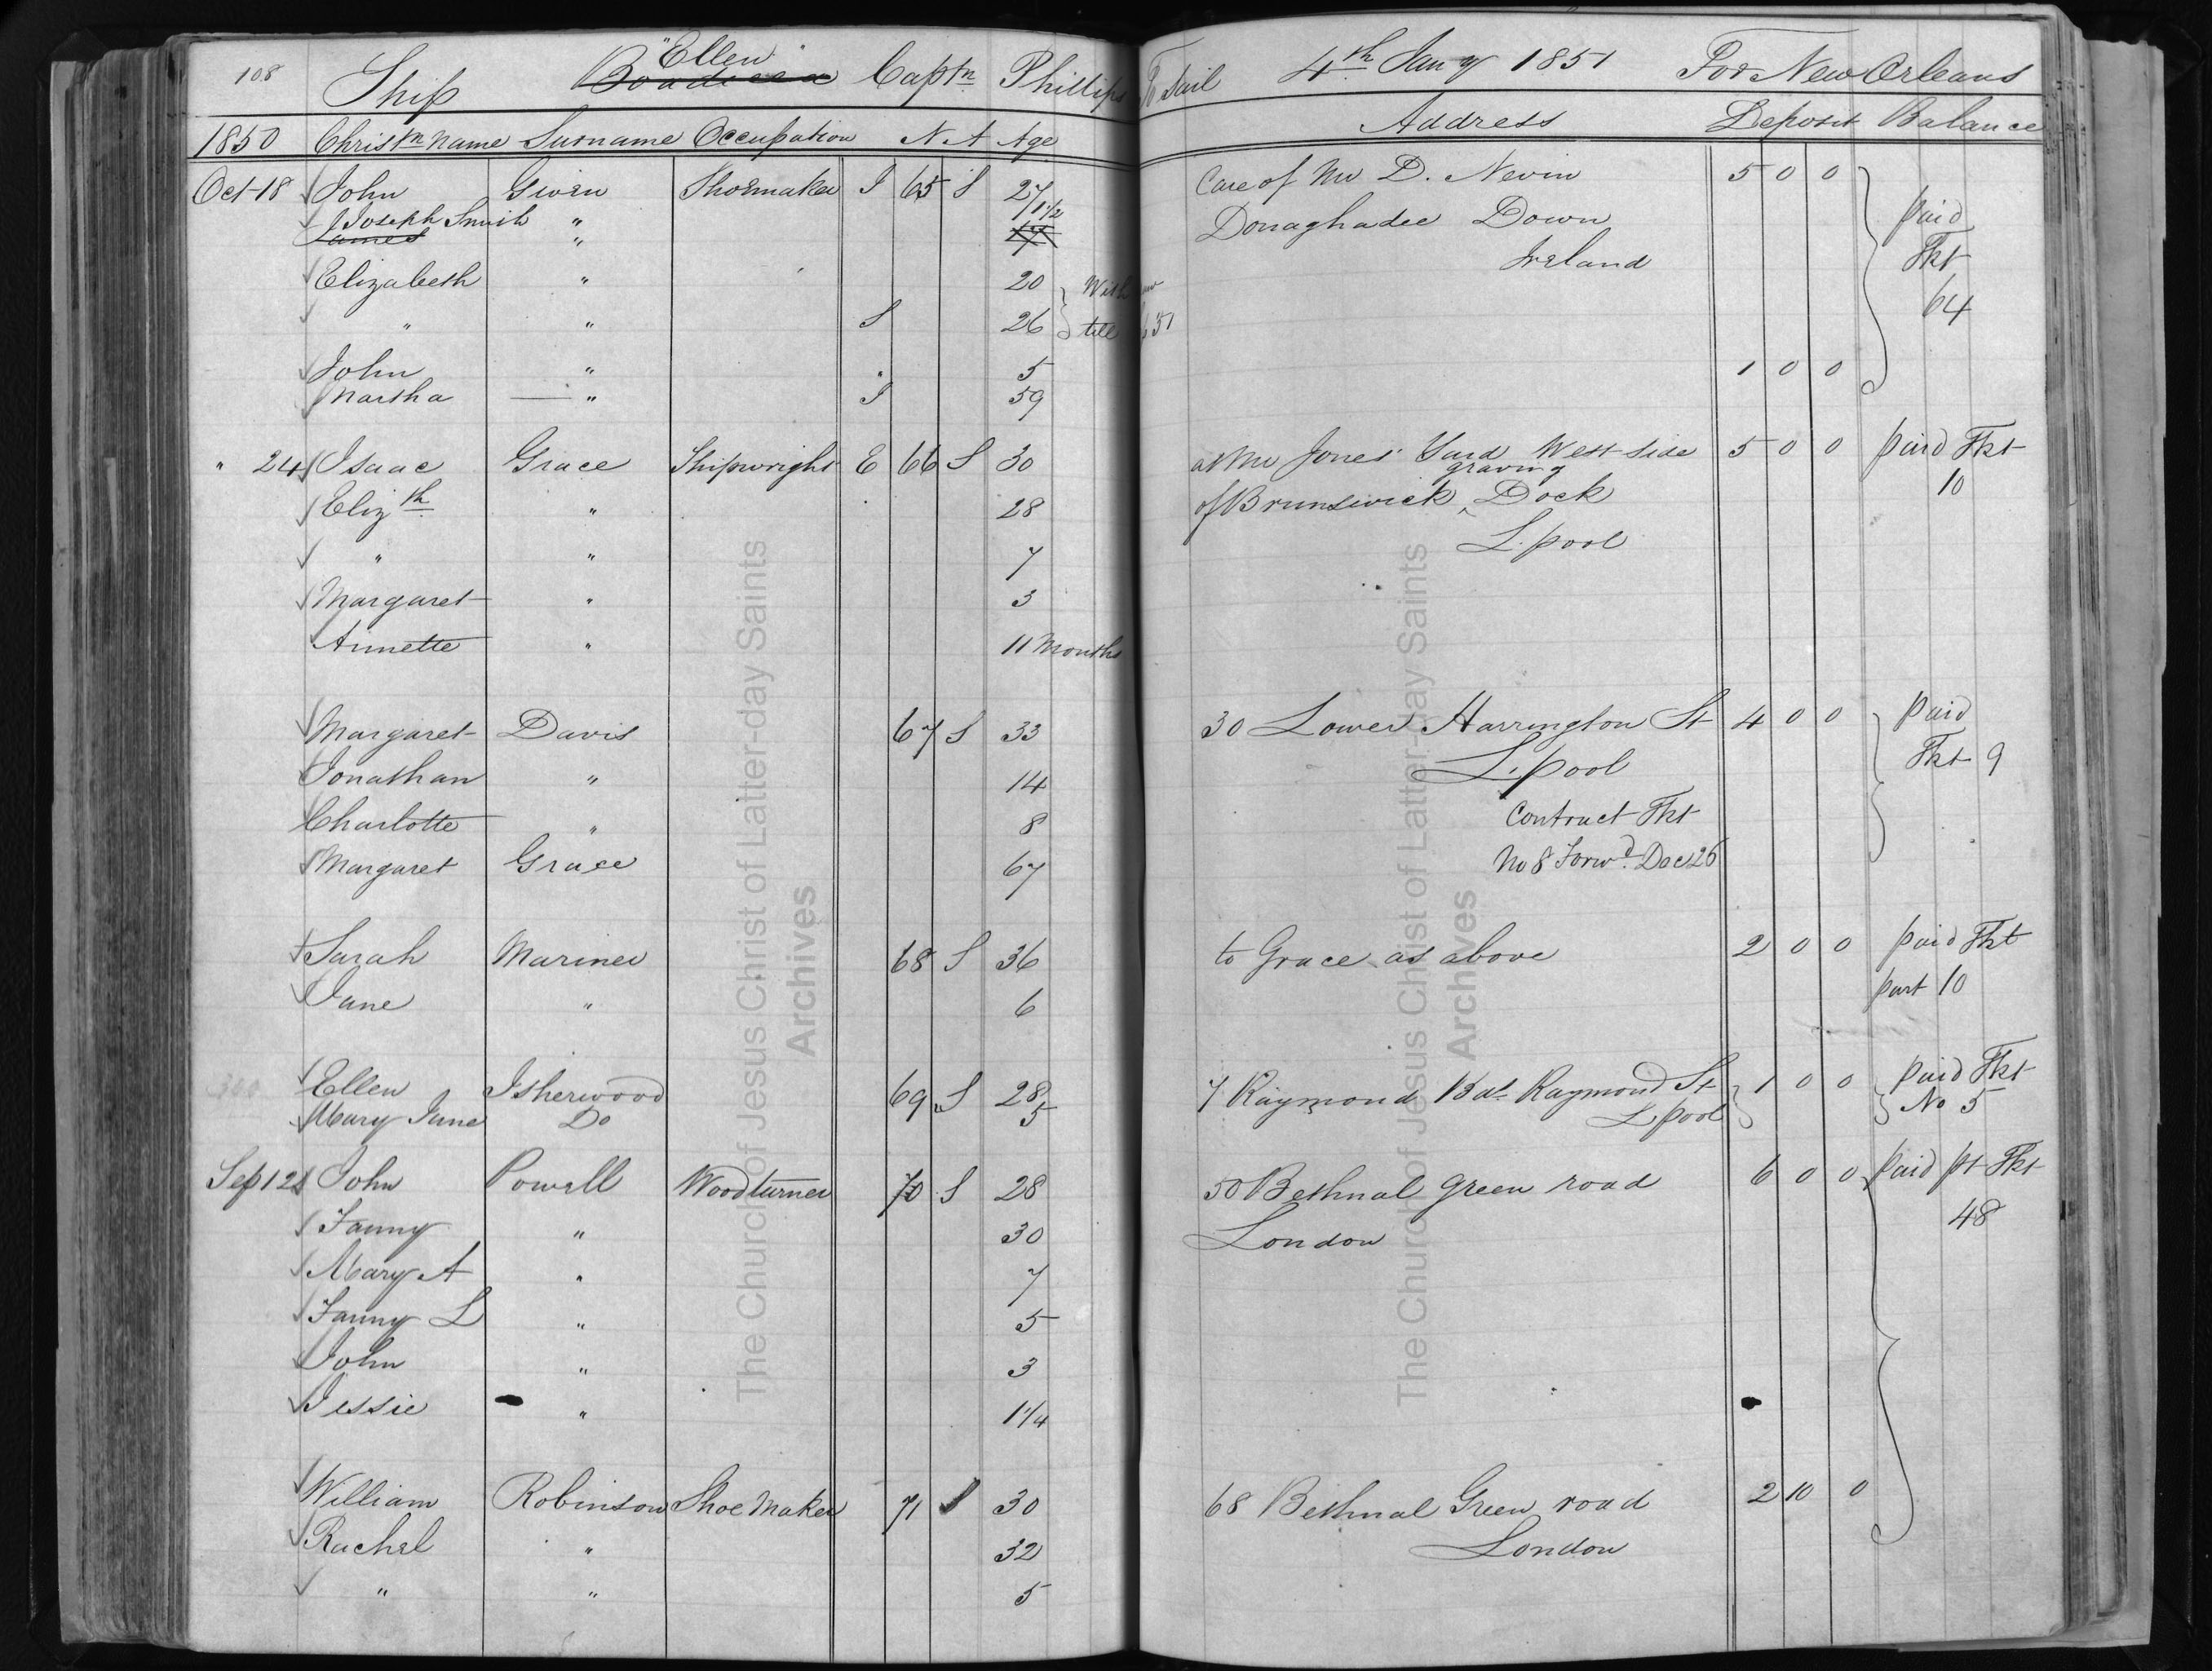 108 Ship "Ellen" Capt.n Phillips To Sail 4th Jany 1851 For New Orleans
Boadicea
1850 Christn name Surname Occupation N A Age Address Deposit Balance
Oct 18 John Given Shoemaker I 65 S 27 Care of Mr D. Nevin 5 0 0 paid
Joseph Smith " 1 1/2 Donaghadee Down Tkt
James " Ireland 64
Elizabeth " 20
" " S 26 till
John " " 5 1 0 0
Martha " I 59
" 24 Isaac Grace Shipwright E 66 S 30 at Mr Jones' Yard West side 5 0 0 paid Tkt
Elizth " 28 of Brunswick graving Dock 10
" " 7 L.pool
Margaret " 3
Annette " 11 Months
Margaret Davis 67 S 33 30 Lower Harrington St 4 0 0 paid
Jonathan " 14 L.pool Tkt 9
Charlotte " 8 Contract Tkt
Margaret Grace 67 No 8 Forwd. Dec 26
Sarah Mariner 68 S 36 to Grace as above 2 0 0 paid Tkt
Jane " 6 part 10
Ellen Isherwood 69 S 28 7 Raymond Bds Raymond St 1 0 0 paid Tkt
Mary Jane Do 5 L.pool No 5
Sep 12 John Powell Woodturner 70 S 28 50 Bethnal green road 6 0 0 paid pt Tkt
Fanny " 30 London 48
Mary A " 7
Fanny L " 5
John " 3
Jessie " 1 1/4
William Robinson Shoe Maker 71 S 30 68 Bethnal Green road 2 10 0
Rachel " 32 London
" " 5
The Church of Jesus Christ of Latter-day Saints
Archives
The Church of Jesus Christ of Latter-day Saints
Archives